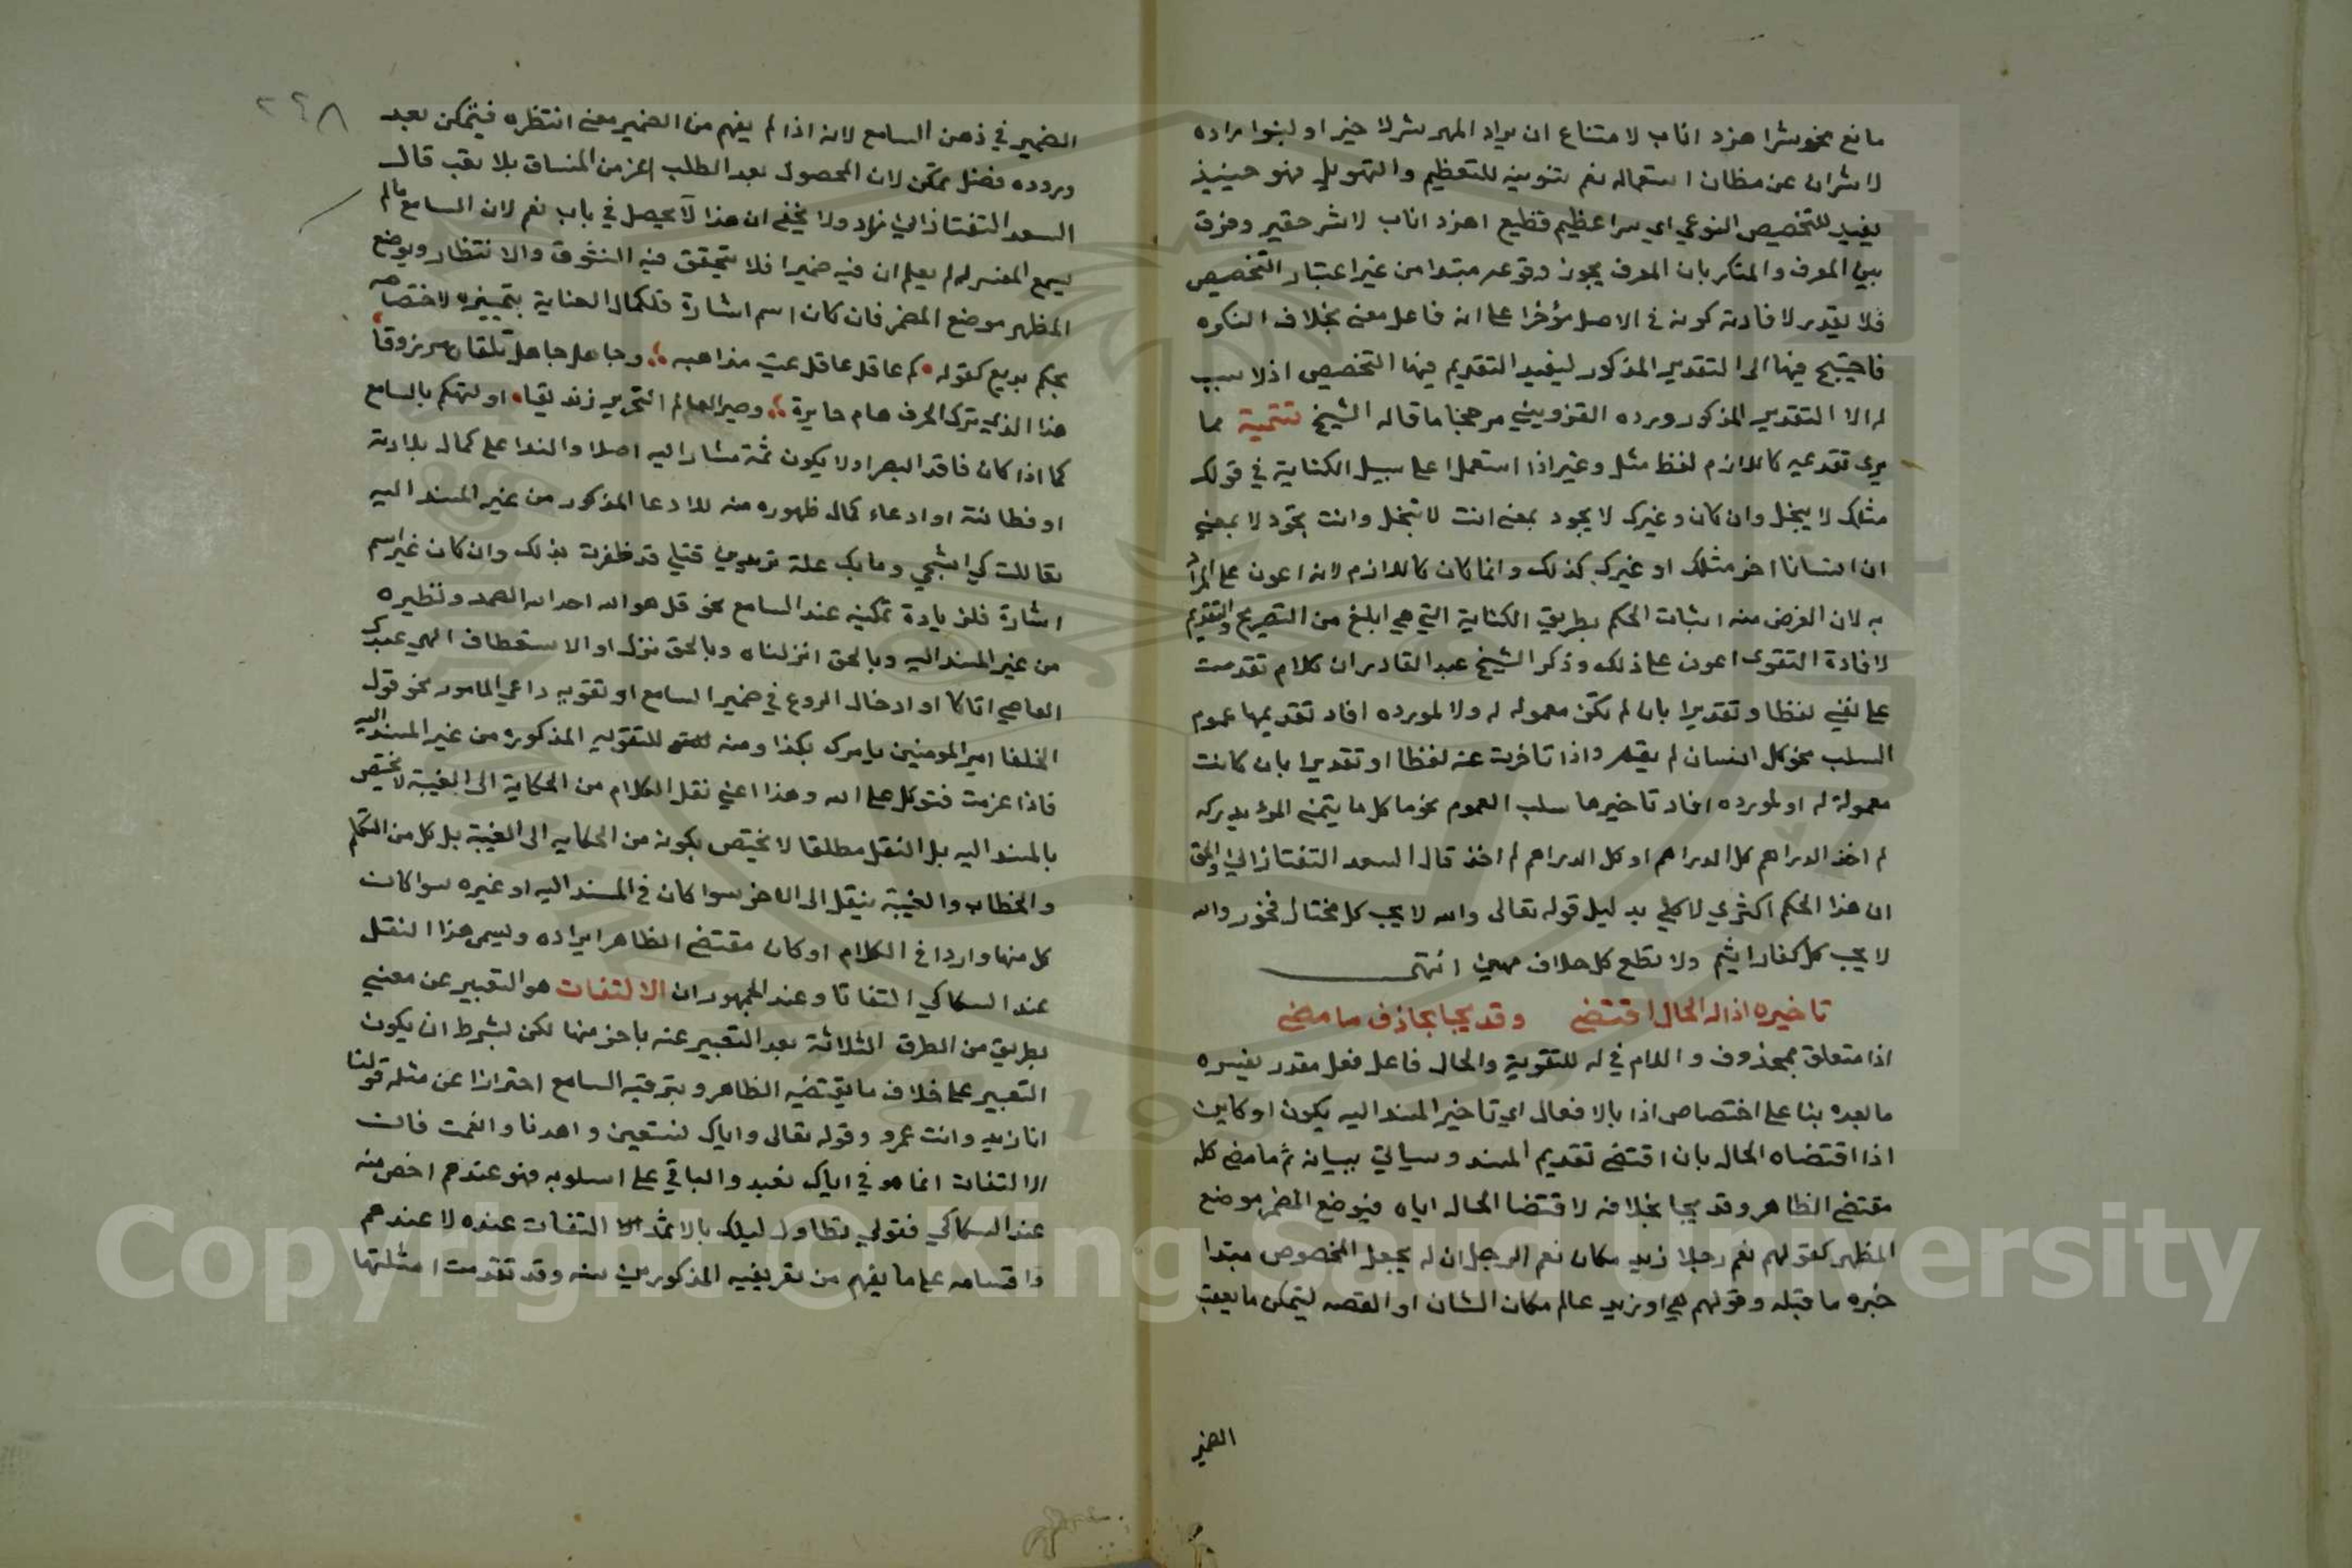 مانع نحو شرا هزد اناب لا متناع ان يراد المهر شر لا خير او لنبوا مراده
لا شران عن مظان استعماله نعم تنوينه للتعظيم والتهويل فهو حينيذ
يفيد للتخصيص النوعي اي شرا عظيم فظيع اهرذ اناب لا شر حقير وفرق
بين المعرف والمنكر بان المعرف يجوز وقوعه مبتدا من غير اعتبار التخصيص
فلا يقدر لافادته كونه في الاصل مؤخرا على انه فاعل معنى بخلاف النكره
فاحتيج فيها الى التقدير المذكور ليفيد التقديم فيها التخصيص اذ لا سبب
له الا التقدير المذكور ورده القزويني مرجحا ما قاله الشيخ تتمية مما
يرى تقدميه كاللازم لفظ مثل وغير اذا استعملا على سبيل الكناية في قولك
مثلك لا يبخل وان كان وغيرك لا يجود بمعنى انت لا تبخل وانت تجود لا بمعنى
ان انسانا اخر مثلك او غيرك كذلك وانما كان كاللازم لانه اعون على المراد
به لان الغرض منه اثبات الحكم بطريق الكناية التي هي ابلغ من التصريح والتقديم
لافادة التقوى اعون على ذلك وذكر الشيخ عبد القادر ان كلام تقدمت
على نفي لفظا وتقديرا بان لم تكن معموله له ولا لمورده افاد تقديمها عموم
السلب نحو كل انسان لم يقم واذا تاخرت عنه لفظا او تقديرا بان كانت
معمولة له او لمورده افاد تاخيرها سلب العموم نحو ما كل ما يتمنى المرء يدركه
لم اخذ الدراهم كل الدراهم او كل الدراهم لم اخذ قال السعد التفتازاني والحق
ان هذا الحكم اكثري لا كلي بدليل قوله تعالى والله لا يحب كل مختال فخور والله
لا يحب كل كفار اثيم ولا تطع كل حلاف مهين انتهى
تاخيره اذا له الحال اقتضى وقد يجا بحاذف ما مضى
اذا متعلق بمحذوف واللام في له للتقوية والحال فاعل فعل مقدر يفسره
ما بعده بنا على اختصاص اذا بالافعال اي تاخير المسند اليه يكون او كاين
اذا اقتضاه الحال بان اقتضى تقديم المسند وسياتي بيانه ثم ما مضى كله
مقتضى الظاهر وقد يجا بخلافه لاقتضا الحال اياه فيوضع المضمر موضع
المظهر كقولهم نعم رجلا زيد مكان نعم الرجل ان لم يجعل المخصوص مبتدا
خبره ما قبله وقولهم هي او زيد عالم مكان الشان او القصه ليتمكن ما يعقب
الضمير
٢٩٨
الضمير في ذهن السامع لانه اذا لم يفهم من الضمير معنى انتظره فيتمكن بعد
وروده فضل تمكن لان المحصول بعد الطلب اعز من المنساق بلا تعب قال
السعد التفتازاني ولا يخفى ان هذا لا يحصل في باب نعم لان السامع ما لم
يسمع المفسر له لم يعلم ان فيه ضميرا فلا يتحقق فيه التشوق والانتظار ويوضع
المظهر موضع المضمر فان كان اسم اشارة فلكمال العناية بتمييزه لاختصاصه
بحكم بديع كقوله كم عاقل عاقل عيت مذاهبه وجاهل جاهل تلقاه مرزوقا
هذا الذي ترك الحرف هام حايرة وصير العالم النحرير زنديقا او لتهكم بالسامع
كما اذا كان فاقد البصر او لا يكون ثمة مشار اليه اصلا والندا على كمال بلادته
او فطانته او ادعاء كمال ظهوره منه للادعا المذكور من غير المسند اليه
تعاللت كي اشجي وما بك علة تريدين قتلي قد ظفرت بذلك وان كان غير اسم
اشارة فلزيادة تمكينه عند السامع نحو قل هو الله احد الله الصمد ونظيره
من غير المسند اليه وبالحق انزلناه وبالحق نزل او الاستعطاف الهي عبدك
العاصي اتاكا او ادخال الروع في ضمير السامع او تقويه داعي المامور نحو قول
الخلفا امير المومنين يامرك بكذا ومنه للتقوليه المذكوره من غير المسند اليه
فاذا عزمت فتوكل على الله وهذا اعني نقل الكلام من الحكاية الى الغيبة لا يختص
بالمسند اليه بل النقل مطلقا لا يختص بكونه من الحكايه الى الغيبة بل كل من التكلم
والخطاب والغيبة ينقل الى الاخر سوا كان في المسند اليه او غيره سوا كان
كل منها واردا في الكلام او كان مقتضى الظاهر ايراده ويسمى هذا النقل
عند السكاكي التفاتا وعند الجمهور ان الالتفات هو التعبير عن معنى
بطريق من الطرق الثلاثة بعد التعبير عنه باخر منها لكن بشرط ان يكون
التعبير على خلاف ما يقتضيه الظاهر ويترقبه السامع احترازا عن مثل قولنا
انا زيد وانت عمرو وقوله تعالى واياك نستعين واهدنا وانعمت فان
الالتفات انما هو في اياك نعبد والباقي على اسلوبه فهو عندهم اخص منه
عند السكاكي فقولي تطاول ليلك بالاثمد التفات عنده لا عندهم
واقسامه على ما يفهم من تعريفيه المذكورين سته وقد تقدمت امثلتها
Copyright © King Saud University